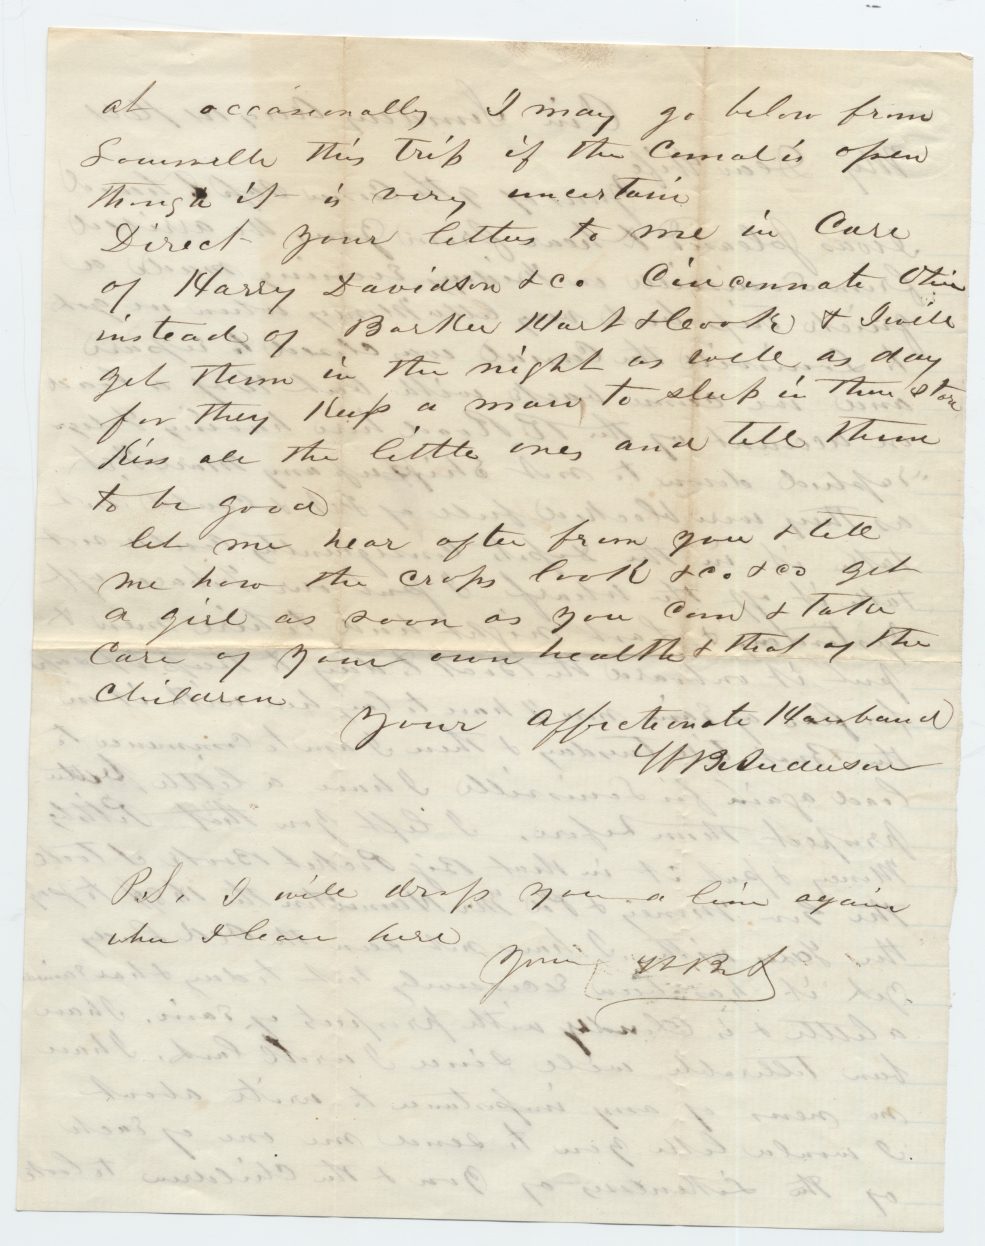 at occasionally I may go below from
Louisville this trip if the Canal is open
though it is very uncertain
Direct your letters to me in Care
of Harry Davidson & co Cincinnati Ohio
instead of Barker Hart & Cook & I will
get them in the night as well as day
for they Keep a man to sleep in their store
Kiss all the little ones and tell them
to be good
let me hear often from you & tell
me how the crops look &c. &c get
a girl as soon as you can & take
care of your own health & that of the
children
your affectionate Husband
W B Anderson
P.S. I will drop you a line again
when I leave here
Yours W B A